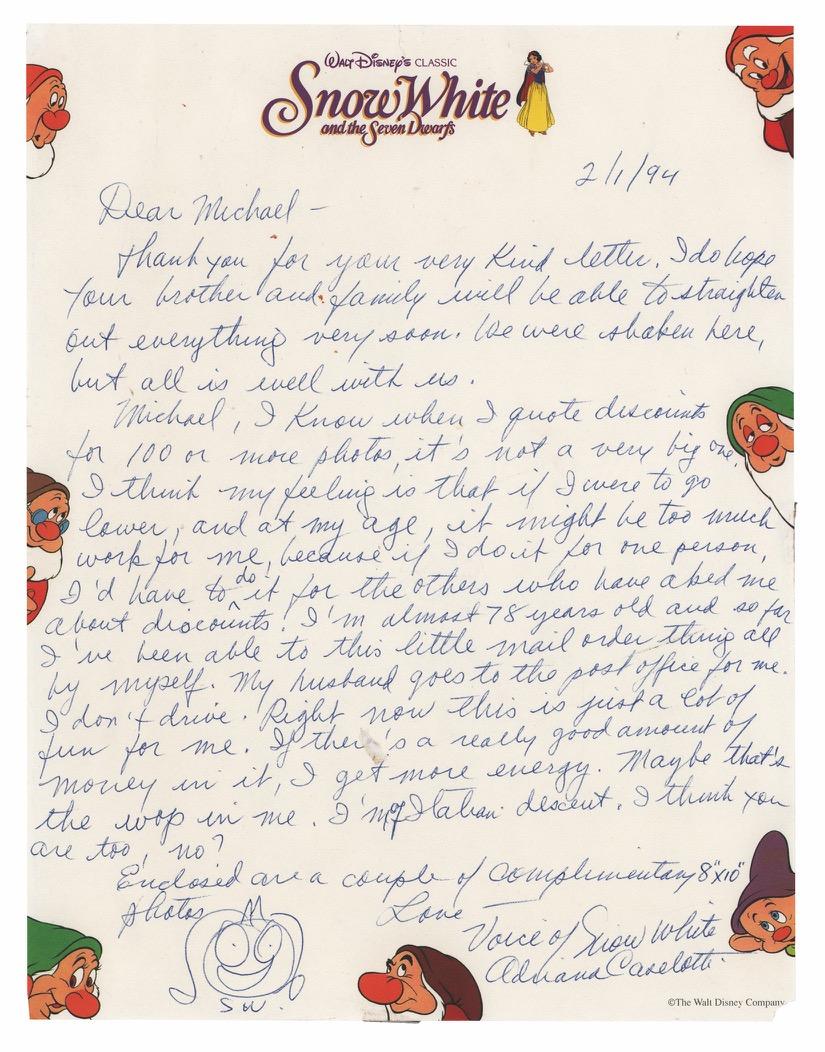 WALT DISNEY'S CLASSIC
Snow White
and the Seven Dwarfs
2/1/94
Dear Michael —
Thank you for your very kind letter. I do hope
your brother and family will be able to straighten
out everything very soon. We were shaken here,
but all is well with us.
Michael, I know when I quote discounts
for 100 or more photos, it's not a very big one.
I think my feeling is that if I were to go
lower, and at my age, it might be too much
work for me, because if I do it for one person,
I'd have to do it for the others who have asked me
about discounts. I'm almost 78 years old and so far
I've been able to this little mail order thing all
by myself. My husband goes to the post office for me.
I don't drive. Right now this is just a lot of
fun for me. If there's a really good amount of
money in it, I get more energy. Maybe that's
the wop in me. I'm of Italian descent. I think you
are too, no?
Enclosed are a couple of complimentary 8"x10"
photos
Love —
Voice of Snow White
Adriana Caselotti
S W.
©The Walt Disney Company